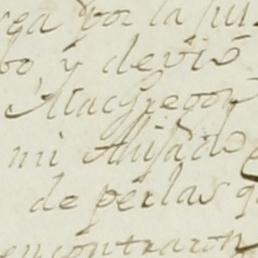 por la
y devió
MacGregor
mi Ahijado
de perlas q
encontraron